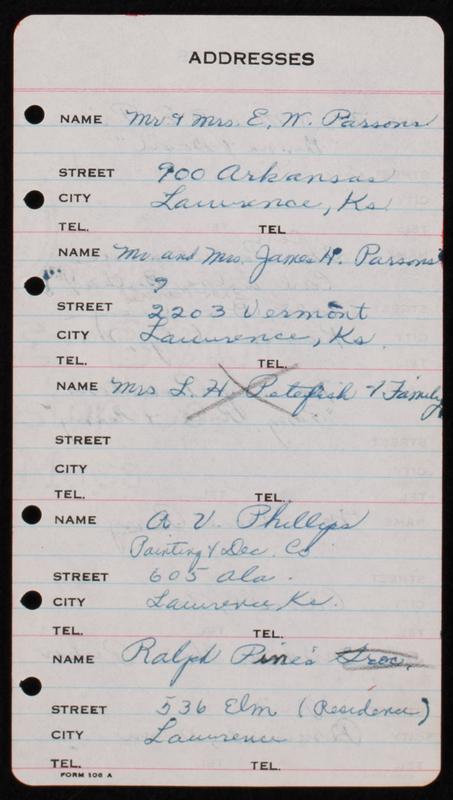 ADDRESSES
NAME Mr & Mrs. E. W. Parsons
STREET 900 Arkansas
CITY Lawrence, Ks.
TEL. TEL
NAME Mr. and Mrs. James H. Parsons
?
STREET 2203 Vermont
CITY Lawrence, Ks.
TEL. TEL.
NAME Mrs L. H. Petefish & Family
STREET
CITY
TEL. TEL.
NAME A. V. Phillips
Painting & Dec. Co
STREET 605 Ala.
CITY Lawrence Ks.
TEL. TEL.
NAME Ralph Pine's Groc.
STREET 536 Elm (Residence)
CITY Lawrence
TEL. TEL.
FORM 106 A